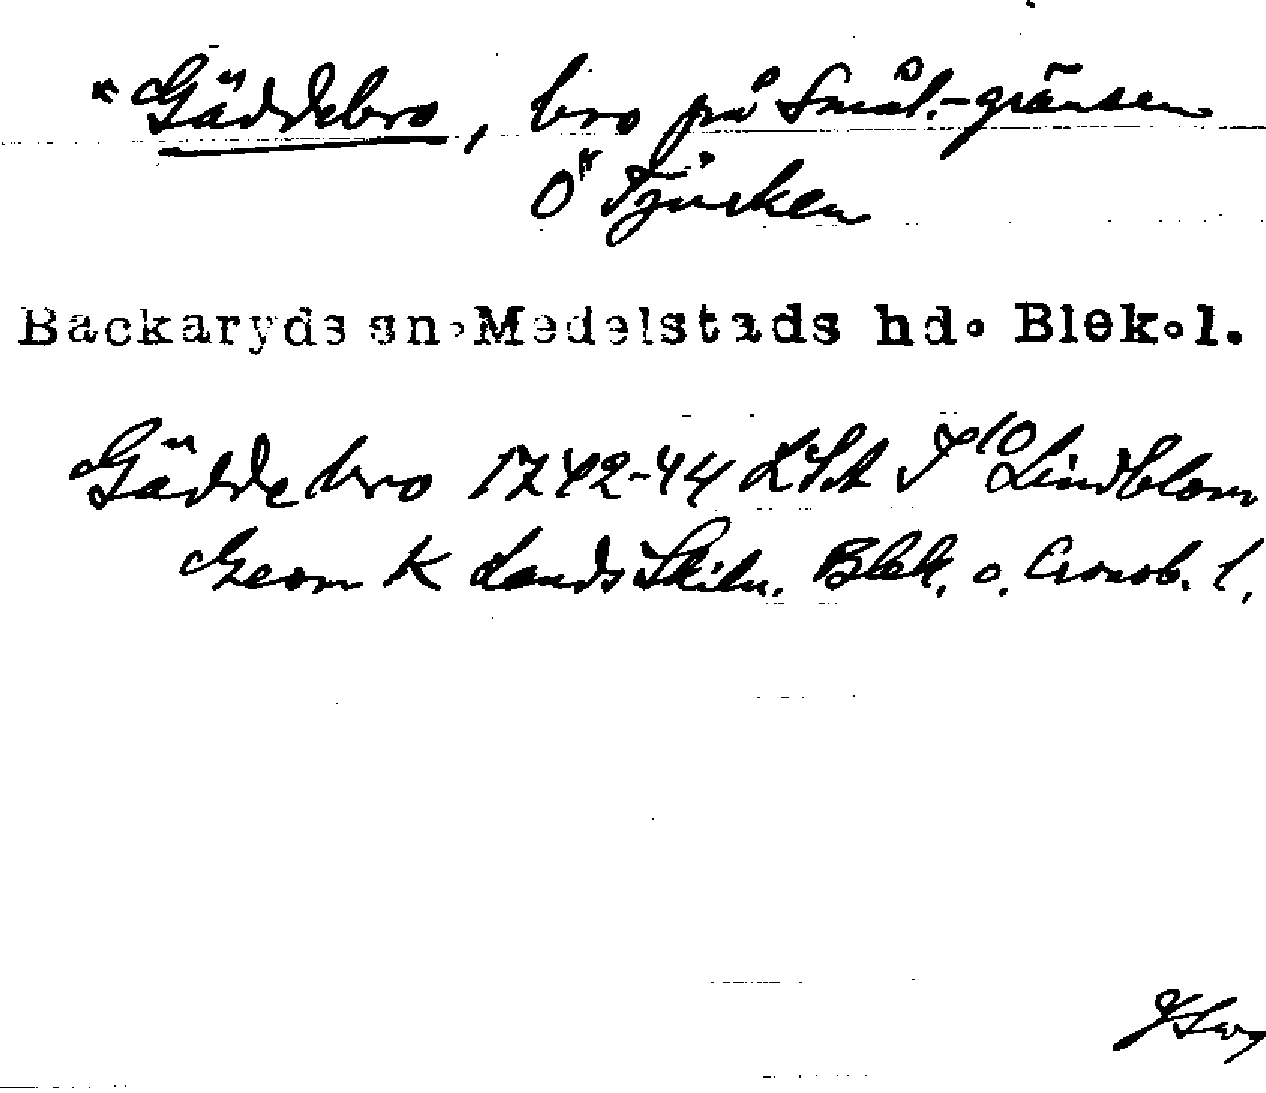 "Gäddebro, bro på Smål.-gränsen
Ö Tjurken
Backaryds sn. Medelstads hd. Blek.l.
Gäddebro 1742-44 LSA J10 Lindblom
Geom K Lands Skiln. Blek. o. Cronob. l.